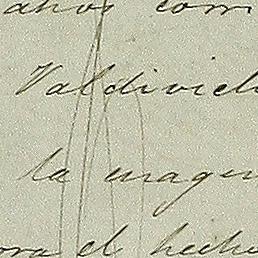 años com
Valdivielo
la enagen
ora el hecho